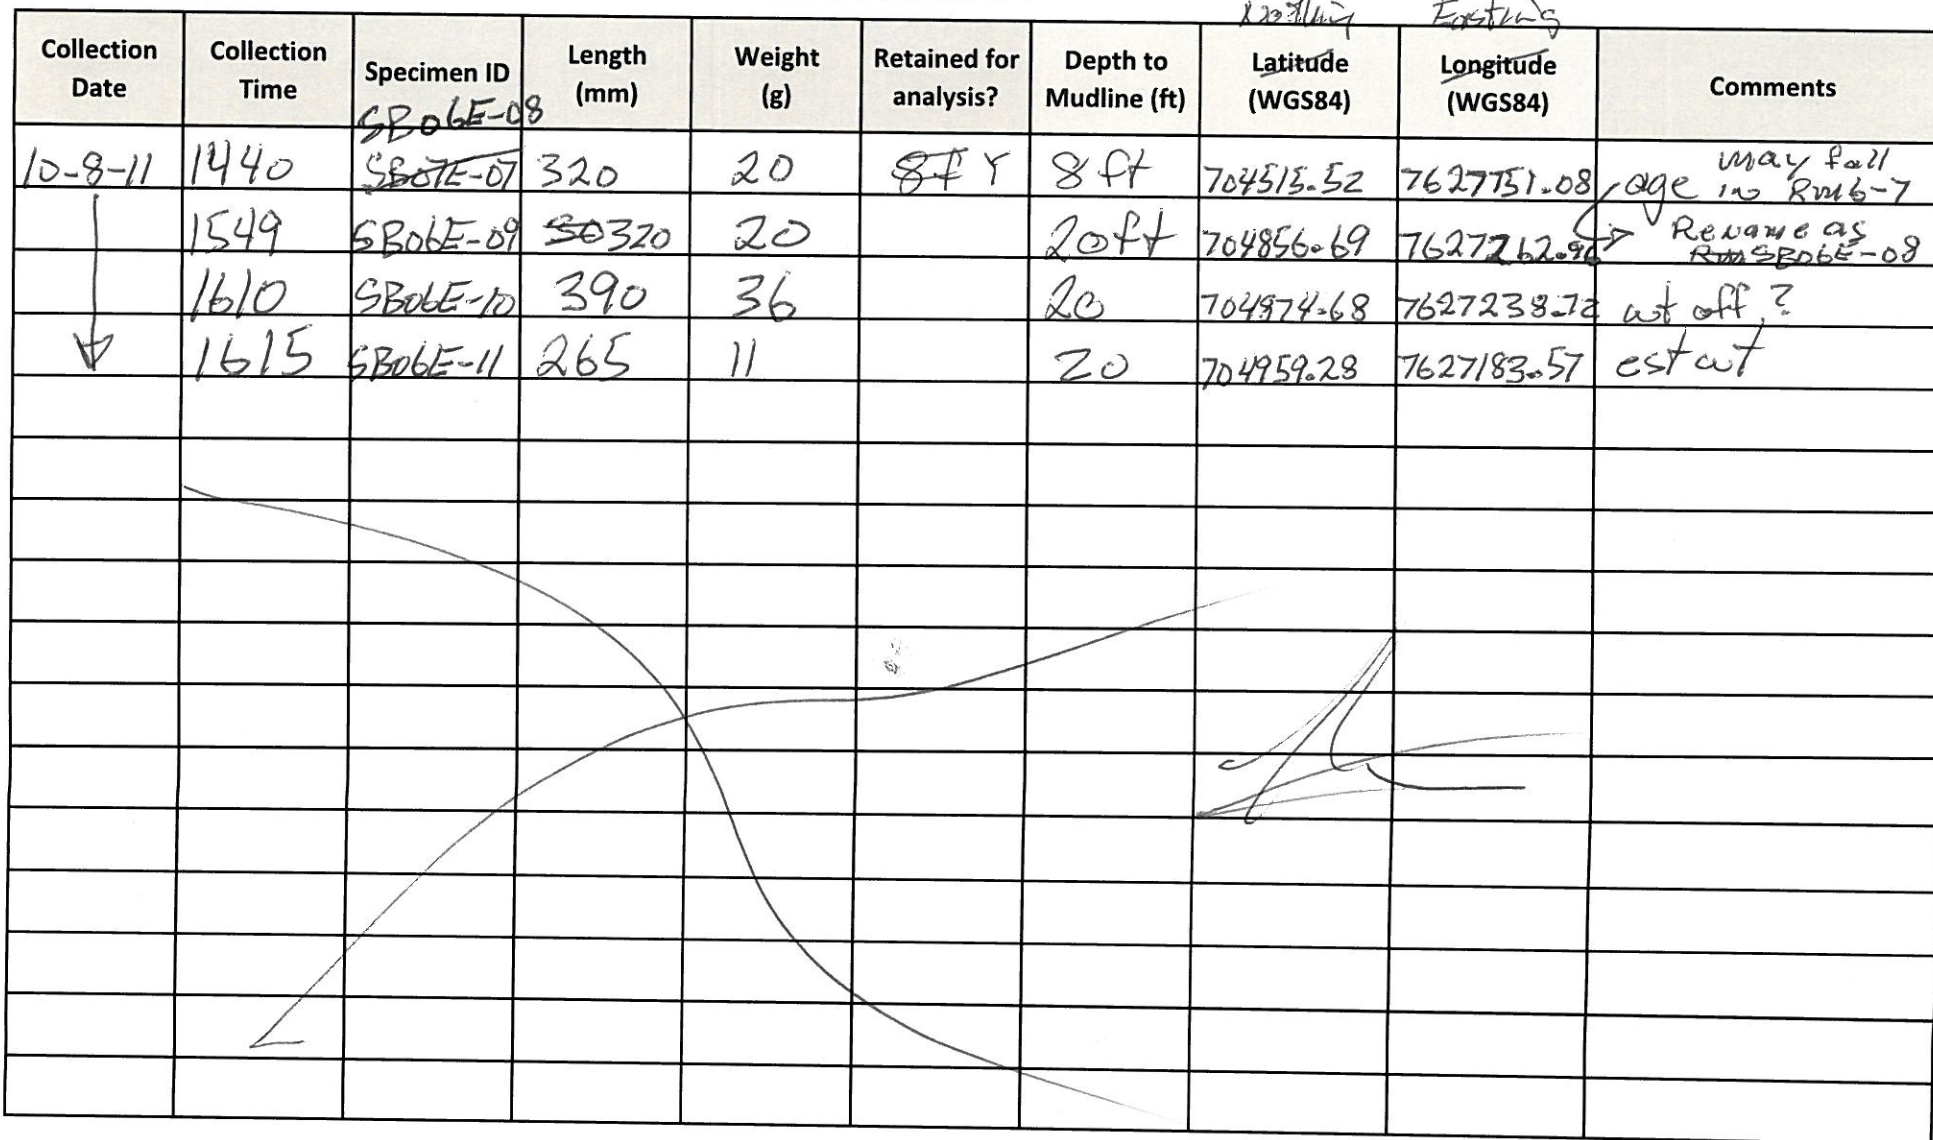 Northing Easting
Collection Date Collection Time Specimen ID Length (mm) Weight (g) Retained for analysis? Depth to Mudline (ft) Latitude (WGS84) Longitude (WGS84) Comments
SB06E-08
10-8-11 1440 SB07E-07 320 20 Y 8ft 704515.52 7627751.08 age may fall in Rm6-7
1549 SB06E-09 320 20 20ft 704856.69 7627262.96 Rename as SB06E-08
1610 SB06E-10 390 36 20 704974.68 7627238.72 wt off?
1615 SB06E-11 265 11 20 704959.28 7627183.57 est wt